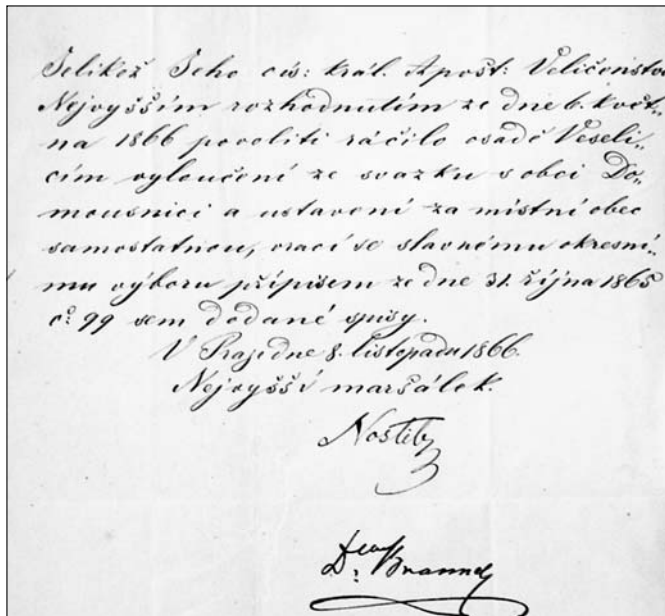 Jelikož Jeho cís: král. Apošt: Veličenstvo
Nejvyšším rozhodnutím ze dne 6. květ„
na 1866 povoliti ráčilo osadě Veseli„
cím vyloučení ze svazku s obcí Do„
mousnicí a ustavení za místní obec
samostatnou, vrací se slavnému okresní„
mu výboru přípisem ze dne 31. října 1865
č: 99 sem dodané spisy.
V Praze dne 8. listopadu 1866.
Nejvyšší maršálek.
Nostitz
Dr.